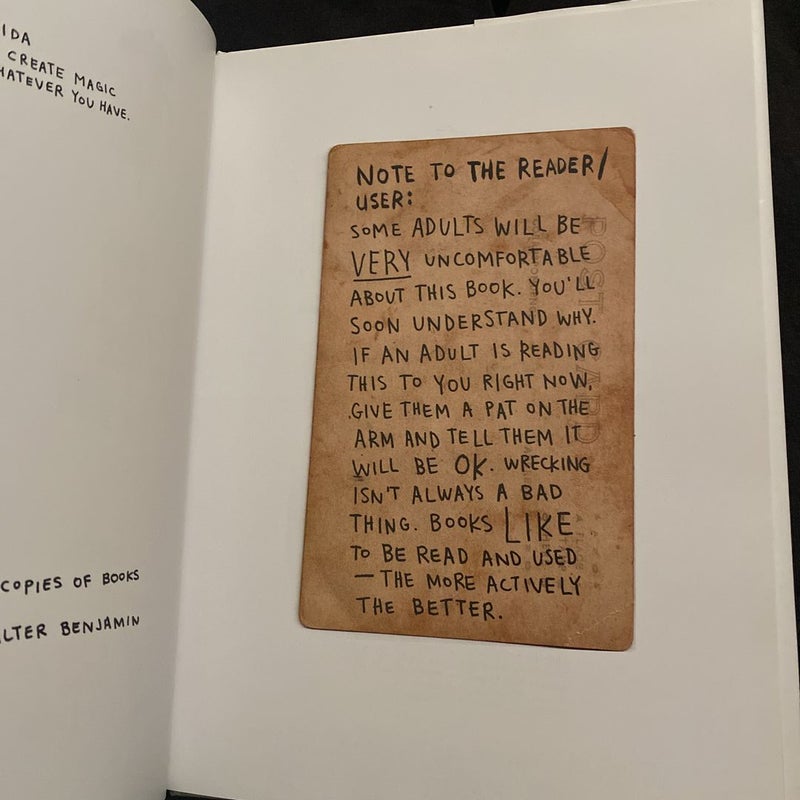 IDA
CREATE MAGIC
WHATEVER YOU HAVE.
COPIES OF BOOKS
WALTER BENJAMIN
NOTE TO THE READER/
USER:
SOME ADULTS WILL BE
VERY UNCOMFORTABLE
ABOUT THIS BOOK. YOU'LL
SOON UNDERSTAND WHY.
IF AN ADULT IS READING
THIS TO YOU RIGHT NOW,
GIVE THEM A PAT ON THE
ARM AND TELL THEM IT
WILL BE OK. WRECKING
ISN'T ALWAYS A BAD
THING. BOOKS LIKE
TO BE READ AND USED
—THE MORE ACTIVELY
THE BETTER.
POST CARD